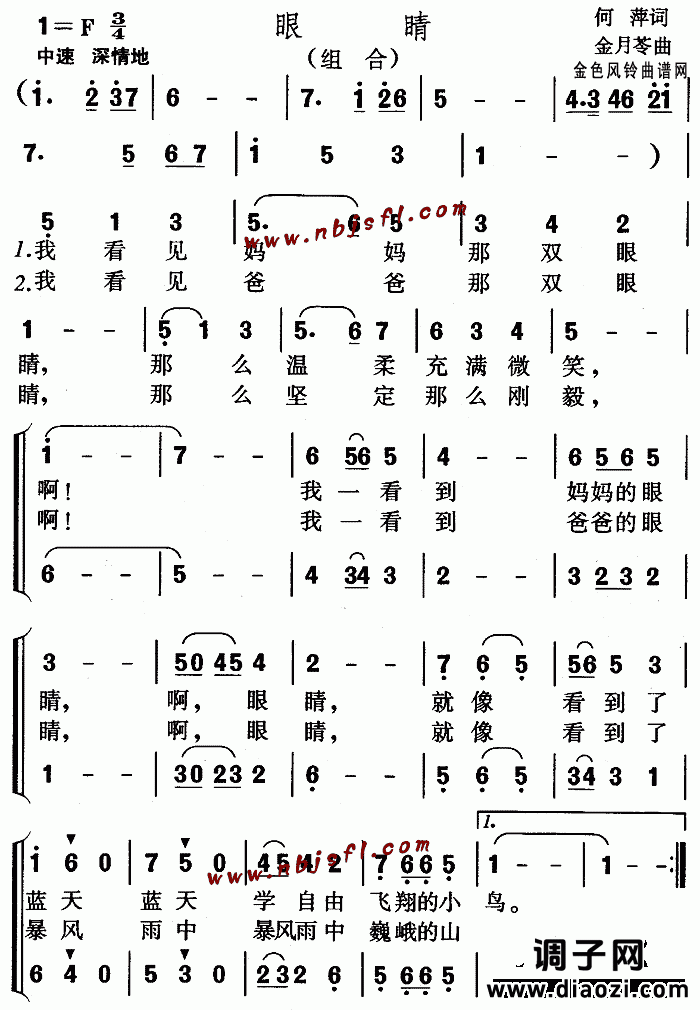 1=F 3/4 眼 睛 何 萍词
中速 深情地 (组 合) 金月苓曲
金色风铃曲谱网
(i. 2 37 | 6 - - | 7. i 26 | 5 - - | 4.3 46 2i |
7. 5 6 7 | i 5 3 | 1 - - )
5 1 3 | 5. 6 5 | 3 4 2
www.nbjsfl.com
1.我 看 见 妈 妈 那 双 眼
2.我 看 见 爸 爸 那 双 眼
1 - - | 5 1 3 | 5. 6 7 | 6 3 4 | 5 - - |
睛, 那 么 温 柔 充 满 微 笑,
睛, 那 么 坚 定 那 么 刚 毅,
i - - | 7 - - | 6 56 5 | 4 - - | 6 5 6 5 |
啊! 我 一 看 到 妈妈的眼
啊! 我 一 看 到 爸爸的眼
6 - - | 5 - - | 4 34 3 | 2 - - | 3 2 3 2 |
3 - - | 50 45 4 | 2 - - | 7 6 5 | 56 5 3 |
睛, 啊, 眼 睛, 就 像 看 到 了
睛, 啊, 眼 睛, 就 像 看 到 了
1 - - | 30 23 2 | 6 - - | 5 6 5 | 34 3 1 |
1.
i 6 0 | 7 5 0 | 45 2 0 | 7 66 5 | 1 - - | 1 - :||
www.nbjsfl.com
蓝 天 蓝 天 学 自 由 飞翔的小 鸟。
暴 风 雨 中 暴风雨 中 巍峨的山
6 4 0 | 5 3 0 | 23 2 6 | 5 66 5 |
调子网
www.diaozi.com